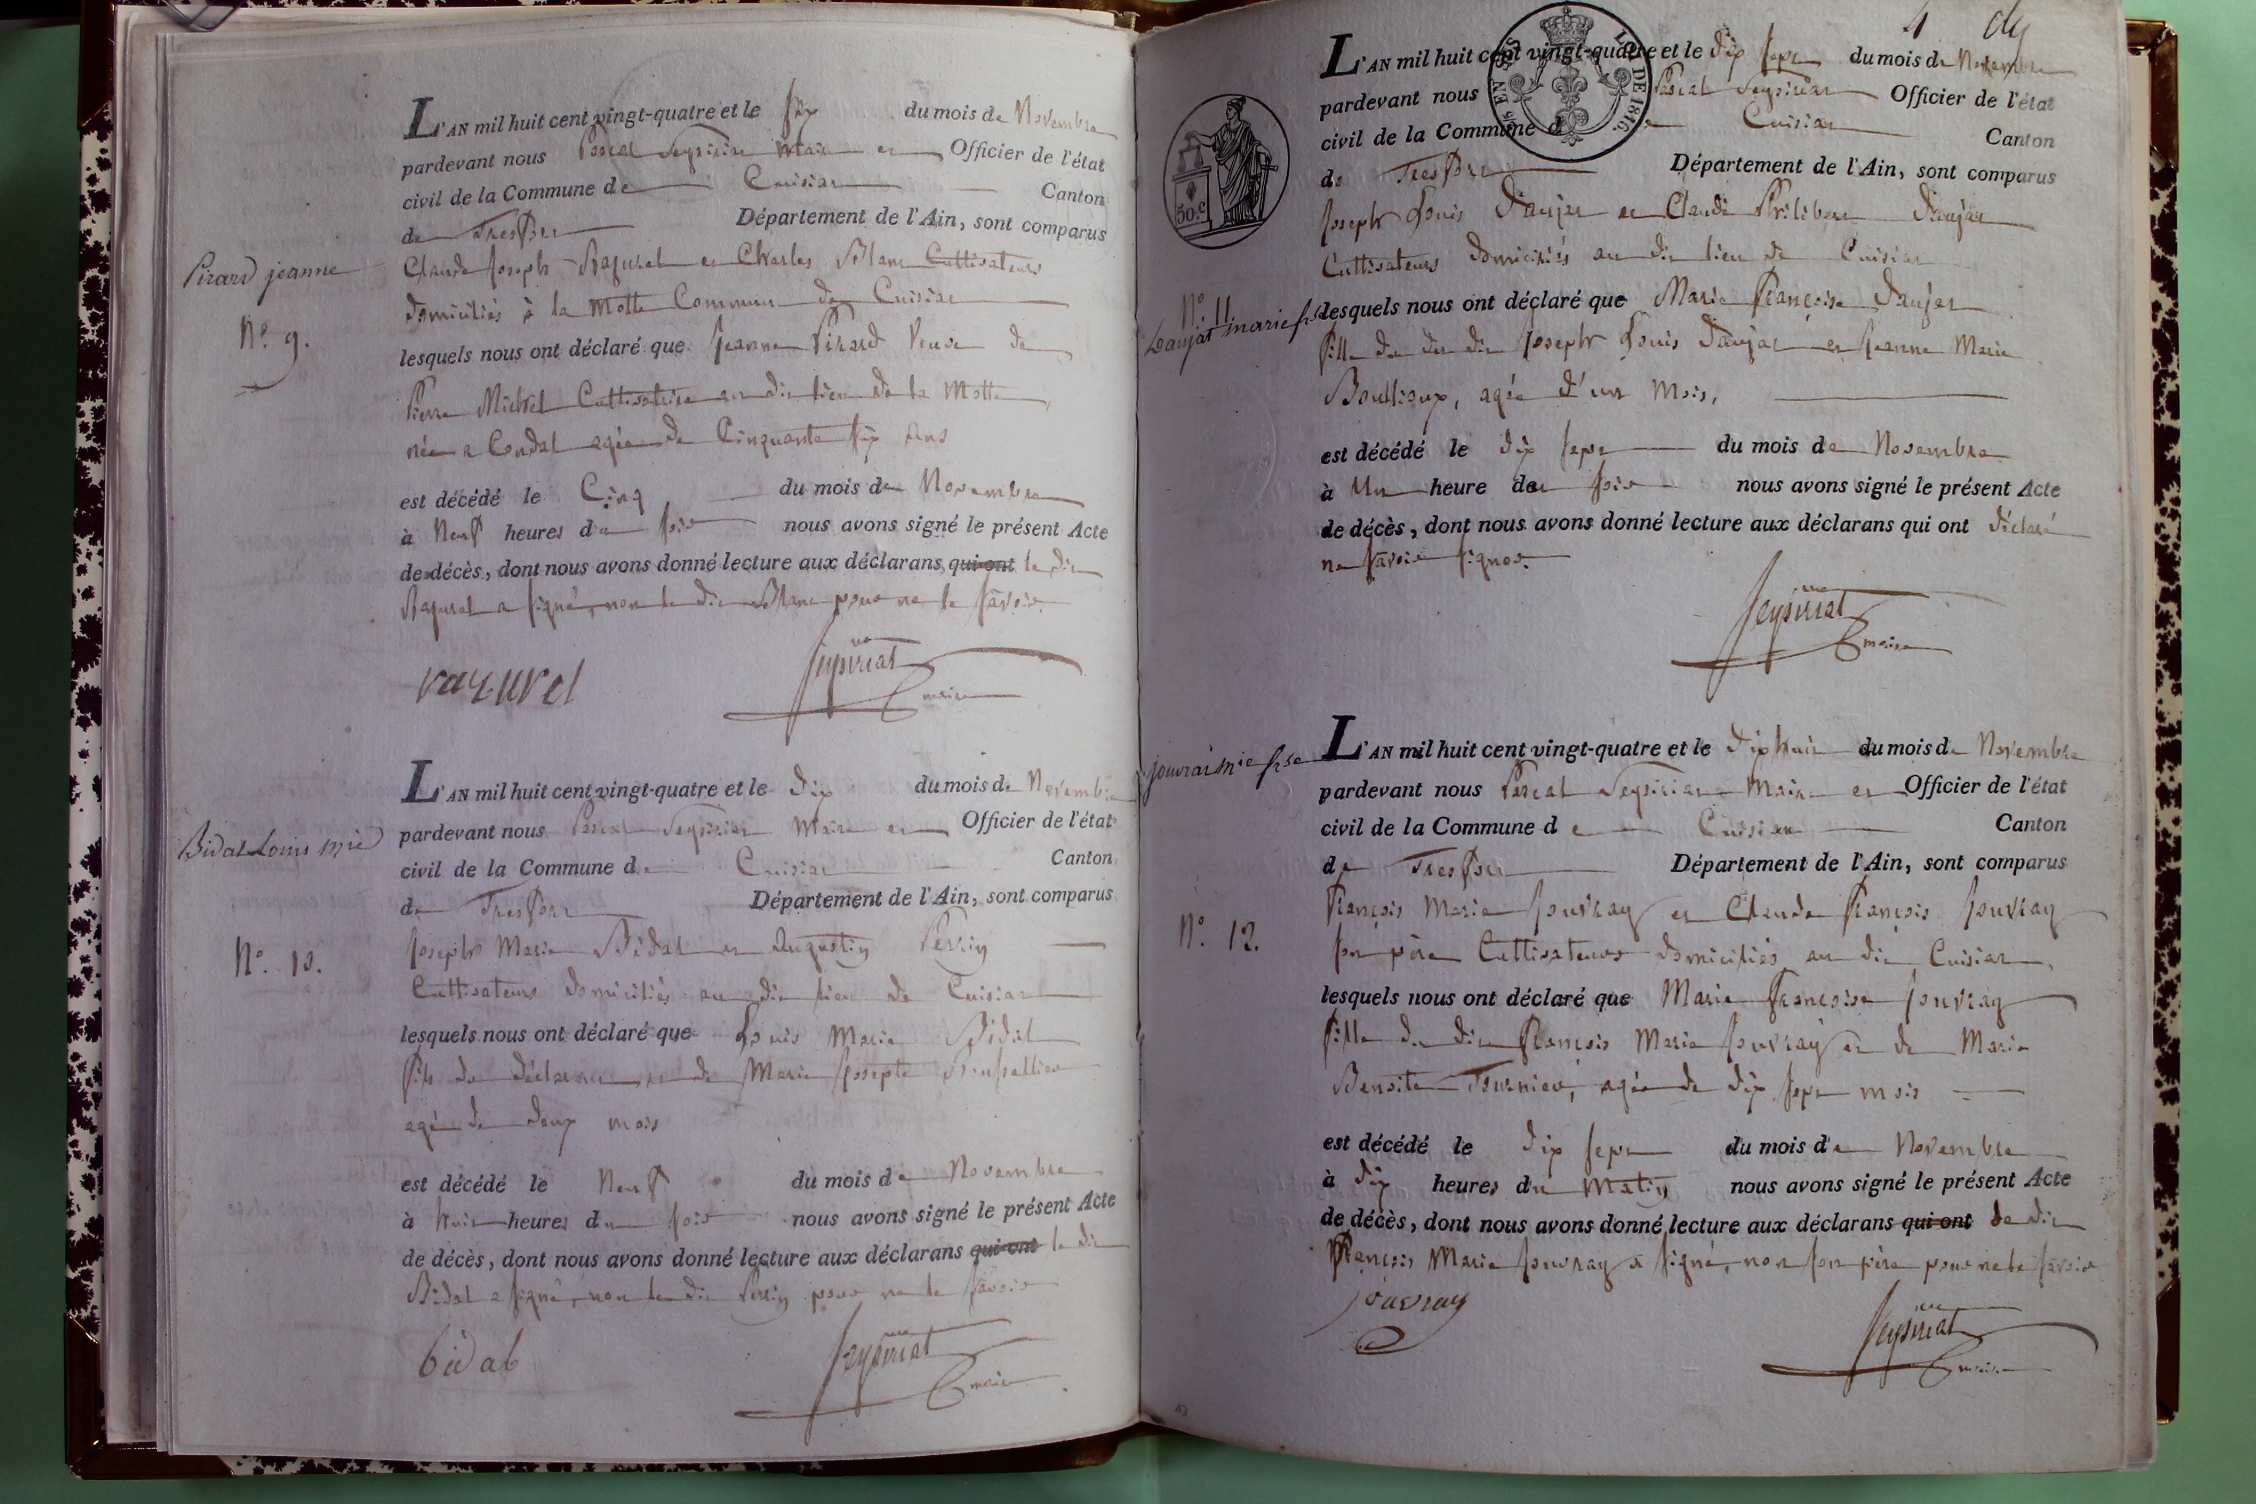 Pirard jeanne
N.° 9.
L'AN mil huit cent vingt-quatre et le six du mois de Novembre
pardevant nous Pascal Seysiriat Maire et Officier de l'état
civil de la Commune de Cuisiat Canton
de Treffort Département de l'Ain, sont comparus
Claude Joseph Razurel et Charles Blanc Cultivateurs
domiciliés à la Motte Commune de Cuisiat
lesquels nous ont déclaré que Jeanne Pirard Veuve de
Pierre Michel Cultivatrice au dit lieu de la Motte,
née a Condal agée de Cinquante six ans
est décédé le Cinq du mois de Novembre
à Neuf heures du soir nous avons signé le présent Acte
de décès, dont nous avons donné lecture aux déclarans qui ont le dit
Razurel a signé, non le dit Blanc pour ne le savoir.
razurel Seysiriat
maire
Bidal Louis mie
N.° 10.
L'AN mil huit cent vingt-quatre et le dix du mois de Novembre
pardevant nous Pascal Seysiriat Maire et Officier de l'état
civil de la Commune de Cuisiat Canton
de Treffort Département de l'Ain, sont comparus
Joseph Marie Bidal et Augustin Perrin
Cultivateurs domiciliés au dit lieu de Cuisiat
lesquels nous ont déclaré que Louis Marie Bidal
fils du déclarant et de Marie Josepte
agé de deux mois
est décédé le Neuf du mois de Novembre
à huit heures du soir nous avons signé le présent Acte
de décès, dont nous avons donné lecture aux déclarans qui ont le dit
Bidal a signé, non le dit Perrin pour ne le savoir
bidal Seysiriat
maire
4
EN SUS LOI DE 1816.
50.c
N.° 11
Daujat marie fse
L'AN mil huit cent vingt-quatre et le dix sept du mois de Novembre
pardevant nous Pascal Seysiriat Officier de l'état
civil de la Commune de Cuisiat Canton
de Treffort Département de l'Ain, sont comparus
Joseph Louis Daujat et Claude Philibert Daujat
Cultivateurs domiciliés au dit lieu de Cuisiat
lesquels nous ont déclaré que Marie Françoise Daujat
fille du dit Joseph Louis Daujat et Jeanne Marie
Boullioux, agée d'un mois,
est décédé le dix sept du mois de Novembre
à Un heure du soir nous avons signé le présent Acte
de décès, dont nous avons donné lecture aux déclarans qui ont déclaré
ne savoir signer.
Seysiriat
maire
jouvrai mie fse
N.° 12.
L'AN mil huit cent vingt-quatre et le dix huit du mois de Novembre
pardevant nous Pascal Seysiriat Maire et Officier de l'état
civil de la Commune de Cuisiat Canton
de Treffort Département de l'Ain, sont comparus
François Marie Jouvray et Claude François Jouvray
son père Cultivateurs domiciliés au dit Cuisiat,
lesquels nous ont déclaré que Marie Françoise Jouvray
fille du dit François Marie Jouvray et de Marie
Benoite Tournier, agée de dix sept mois
est décédé le dix sept du mois de Novembre
à dix heures du Matin nous avons signé le présent Acte
de décès, dont nous avons donné lecture aux déclarans qui ont le dit
François Marie Jouvray a signé, non son père pour ne le savoir
jouvray Seysiriat
maire